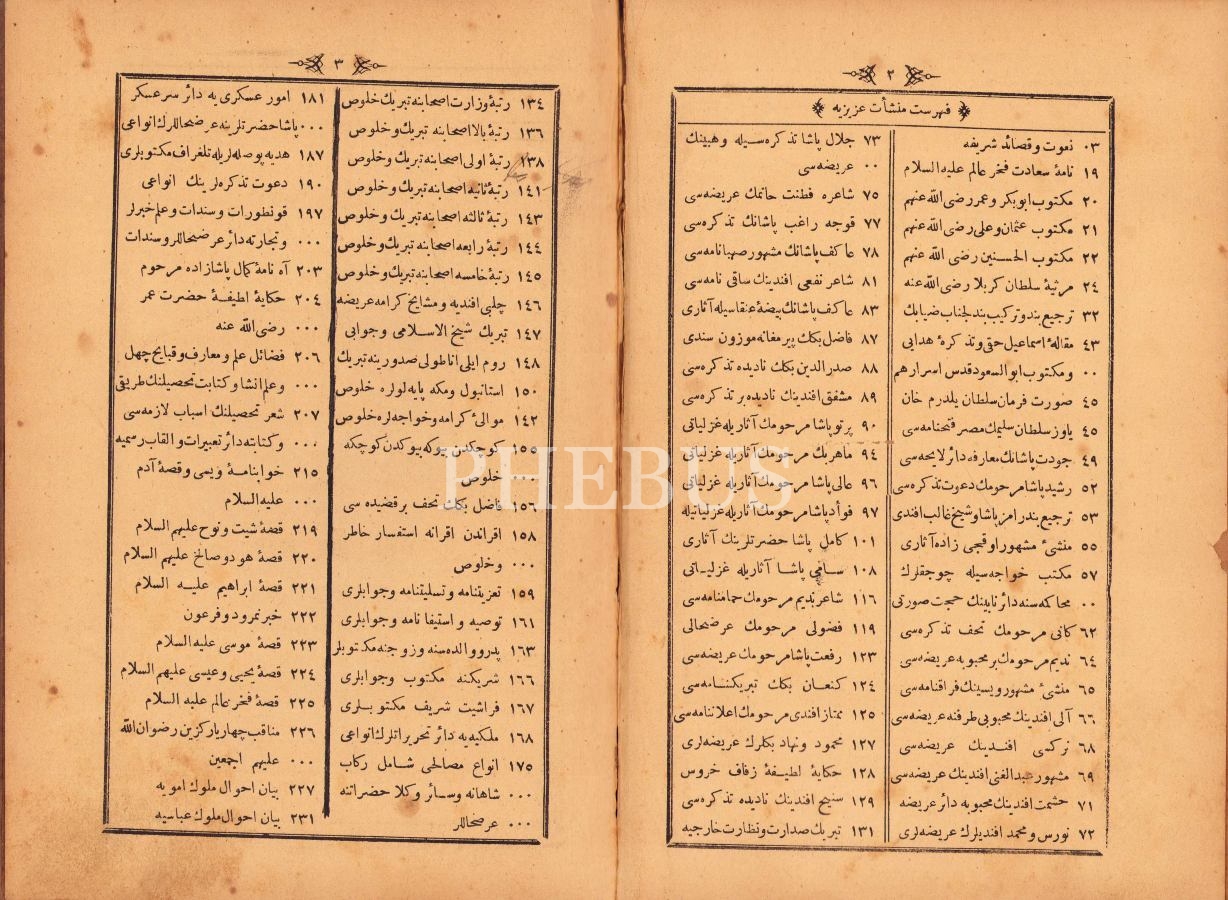 ٢
فهرست منشأت عزیزیه
٠٣ نعوت و قصائد شریفه
١٩ نامهٔ سعادت فخر عالم علیه السلام
٢٠ مکتوب ابو بکر و عمر رضی الله عنهم
٢١ مکتوب عثمان و علی رضی الله عنهم
٢٢ مکتوب الحسنین رضی الله عنهم
٢٤ مرثیهٔ سلطان کربلا رضی الله عنه
٣٢ ترجیع بند و ترکیب بند لجناب ضیابك
٤٣ مقالهٔ اسماعیل حقی و تذکرهٔ هدایی
٠٠ و مکتوب ابو السعود قدس اسرارهم
٤٥ صورت فرمان سلطان یلدرم خان
٤٥ یاوز سلطان سلیمك مصر فتحنامه سی
٤٩ جودت پاشانك معارفه دائر لایحه سی
٥٢ رشید پاشا مرحومك دعوت تذکره سی
٥٣ ترجیع بند رامز پاشا و شیخ غالب افندی
٥٥ منشیٔ مشهور اوقجی زاده آثاری
٥٧ مکتب خواجه سیله چوجقلرك
٠٠ محاکمه سنه دائر نابینك حجت صورتی
٦٢ کانی مرحومك تحف تذکره سی
٦٤ ندیم مرحومك بر محبوبه عریضه سی
٦٥ منشیٔ مشهور ویسینك فراقنامه سی
٦٦ آلی افندینك محبوبی طرفنه عریضه سی
٦٨ نرکسی افندینك عریضه سی
٦٩ مشهور عبدالغنی افندینك عریضه سی
٧١ حشمت افندینك محبوبه دائر عریضه
٧٢ نورس و محمد افندیلرك عریضه لری
٧٣ جلال پاشا تذکره سیله وهبینك
٠٠ عریضه سی
٧٥ شاعره فطنت خانمك عریضه سی
٧٧ قوجه راغب پاشانك تذکره سی
٧٨ عاکف پاشانك مشهور صهبانامه سی
٨١ شاعر نفعی افندینك ساقی نامه سی
٨٣ عاکف پاشانك بیضهٔ عنقا سیله آثاری
٨٧ فاضل بکك پیرمغانه موزون سندی
٨٨ صدرالدین بکك نادیده تذکره سی
٨٩ مشفق افندینك نادیده بر تذکره سی
٩٠ پرتو پاشا مرحومك آثاریله غزلیاتی
٩٤ ماهر بك مرحومك آثاریله غزلیاتی
٩٦ عالی پاشا مرحومك آثاریله غزلیاتی
٩٧ فوأد پاشا مرحومك آثاریله غزلیاتیله
١٠١ کامل پاشا حضرتلرینك آثاری
١٠٨ سامی پاشا آثاریله غزلیاتی
١١٦ شاعر ندیم مرحومك حمامنامه سی
١١٩ فضولی مرحومك عرضحالی
١٢٣ رفعت پاشا مرحومك عریضه سی
١٢٤ کنعان بکك تبریکنامه سی
١٢٥ ممتاز افندی مرحومك اعلاننامه سی
١٢٧ محمود و نهاد بکلرك عریضه لری
١٢٨ حکایهٔ لطیفهٔ زفاف خروس
١٢٩ سنیح افندینك نادیده تذکره سی
١٣١ تبریك صدارت و نظارت خارجیه
٣
١٣٤ رتبهٔ وزارت اصحابنه تبریك خلوص
١٣٦ رتبهٔ بالا اصحابنه تبریك و خلوص
١٣٨ رتبهٔ اولی اصحابنه تبریك و خلوص
١٤١ رتبهٔ ثانیه اصحابنه تبریك و خلوص
١٤٣ رتبهٔ ثالثه اصحابنه تبریك و خلوص
١٤٤ رتبهٔ رابعه اصحابنه تبریك و خلوص
١٤٥ رتبهٔ خامسه اصحابنه تبریك و خلوص
١٤٦ چلبی افندیه و مشایخ کرامه عریضه
١٤٧ تبریك شیخ الاسلامی و جوابی
١٤٨ روم ایلی اناطولی صدورینه تبریك
١٥٠ استانبول و مکه پایه لولره خلوص
١٤٢ موالیٔ کرامه و خواجه لره خلوص
١٥٥ کوچکدن بیوکه بیوکدن کوچکه
٠٠٠ خلوص
١٥٦ فاضل بکك تحف بر قصیده سی
١٥٨ اقراندن اقرانه استفسار خاطر
٠٠٠ و خلوص
١٥٩ تعزیتنامه و تسلیتنامه و جوابلری
١٦١ توصیه و استیفا نامه و جوابلری
١٦٣ پدر و والده سنه و زوجنه مکتوبلر
١٦٦ شریکنه مکتوب و جوابلری
١٦٧ فراشیت شریف مکتوبلری
١٦٨ ملکیه یه دائر تحریراتلرك انواعی
١٧٥ انواع مصالحی شامل رکاب
٠٠٠ شاهانه و سائر وکلا حضراتنه
٠٠٠ عرضحاللر
١٨١ امور عسکری یه دائر سرعسکر
٠٠٠ پاشا حضرتلرینه عرضحاللرك انواعی
١٨٧ هدیه پوصله لریله تلغراف مکتوبلری
١٩٠ دعوت تذکره لرینك انواعی
١٩٧ قونطورات و سندات و علم خبرلر
٠٠٠ و تجارته دائر عرضحاللر و سندات
٢٠٣ آه نامهٔ کمال پاشازاده مرحوم
٢٠٤ حکایهٔ لطیفهٔ حضرت عمر
٠٠٠ رضی الله عنه
٢٠٦ فضائل علم و معارف و قبایح جهل
٠٠٠ و علم انشا و کتابت تحصیلنك طریقی
٢٠٧ شعر تحصیلنك اسباب لازمه سی
٠٠٠ و کتابته دائر تعبیرات و القاب رسمیه
٢١٥ خوابنامهٔ ویسی و قصهٔ آدم
٠٠٠ علیه السلام
٢١٩ قصهٔ شیت و نوح علیهم السلام
٢٢٠ قصهٔ هود و صالح علیهم السلام
٢٢١ قصهٔ ابراهیم علیه السلام
٢٢٢ خبر نمرود و فرعون
٢٢٣ قصهٔ موسی علیه السلام
٢٢٤ قصهٔ یحیی و عیسی علیهم السلام
٢٢٥ قصهٔ فخر عالم علیه السلام
٢٢٦ مناقب چهار یار کزین رضوان الله
٠٠٠ علیهم اجمعین
٢٢٧ بیان احوال ملوك امویه
٢٣١ بیان احوال ملوك عباسیه
PHEBUS